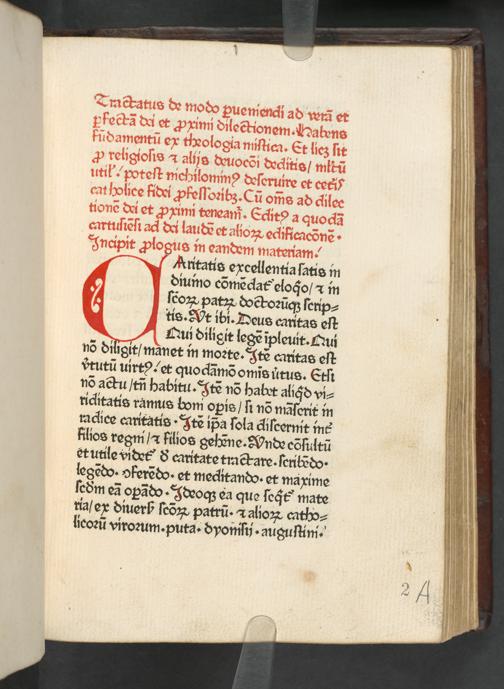 Tractatus de modo ꝑueniendi ad verā et
ꝑfectā dei et ꝓximi dilectionem. Habens
fūdamentū ex theologia mistica. Et licꝫ sit
ꝓ religiosis ⁊ alijs deuocōi deditis / mltū
vtil'. potest nichilominꝰ deseruire et ceteꝭ
catholice fidei ꝓfessoribꝫ. Cū om̄s ad dilec
tionē dei et ꝓximi teneant̄. Editꝰ a quodā
cartusiēsi ad dei laudē et alioꝝ edificacōnē.
Incipit ꝓlogus in eandem materiam.
CAritatis excellentia satis in
diuino cōmēdat̄ eloq̊o / ⁊ in
scōꝝ patꝝ doctorūqꝫ scrip-
tis. Vt ibi. Deus caritas est
Qui diligit legē īpleuit. Qui
nō diligit / manet in morte. Itē caritas est
v̓tutū virtꝰ. et quodāmō omīs v̓tus. Etsi
nō actu / tn̄ habitu. Itē nō habet aliqd vi-
riditatis ramus boni oꝑis / si nō māserit in
radice caritatis. Itē ip̄a sola discernit int̓
filios regni / ⁊ filios gehēne. Vnde cōsultū
et vtile videt̄ d̓ caritate tractare. scribēdo.
legēdo. ↄferēdo. et meditando. et maxime
scdm eā oꝑādo. Ideoqꝫ ea que seqt̄ mate
ria / ex diuersꝭ scōꝝ patrū. ⁊ alioꝝ catho-
licorū virorum. puta. dyonisii. augustini.
2 A